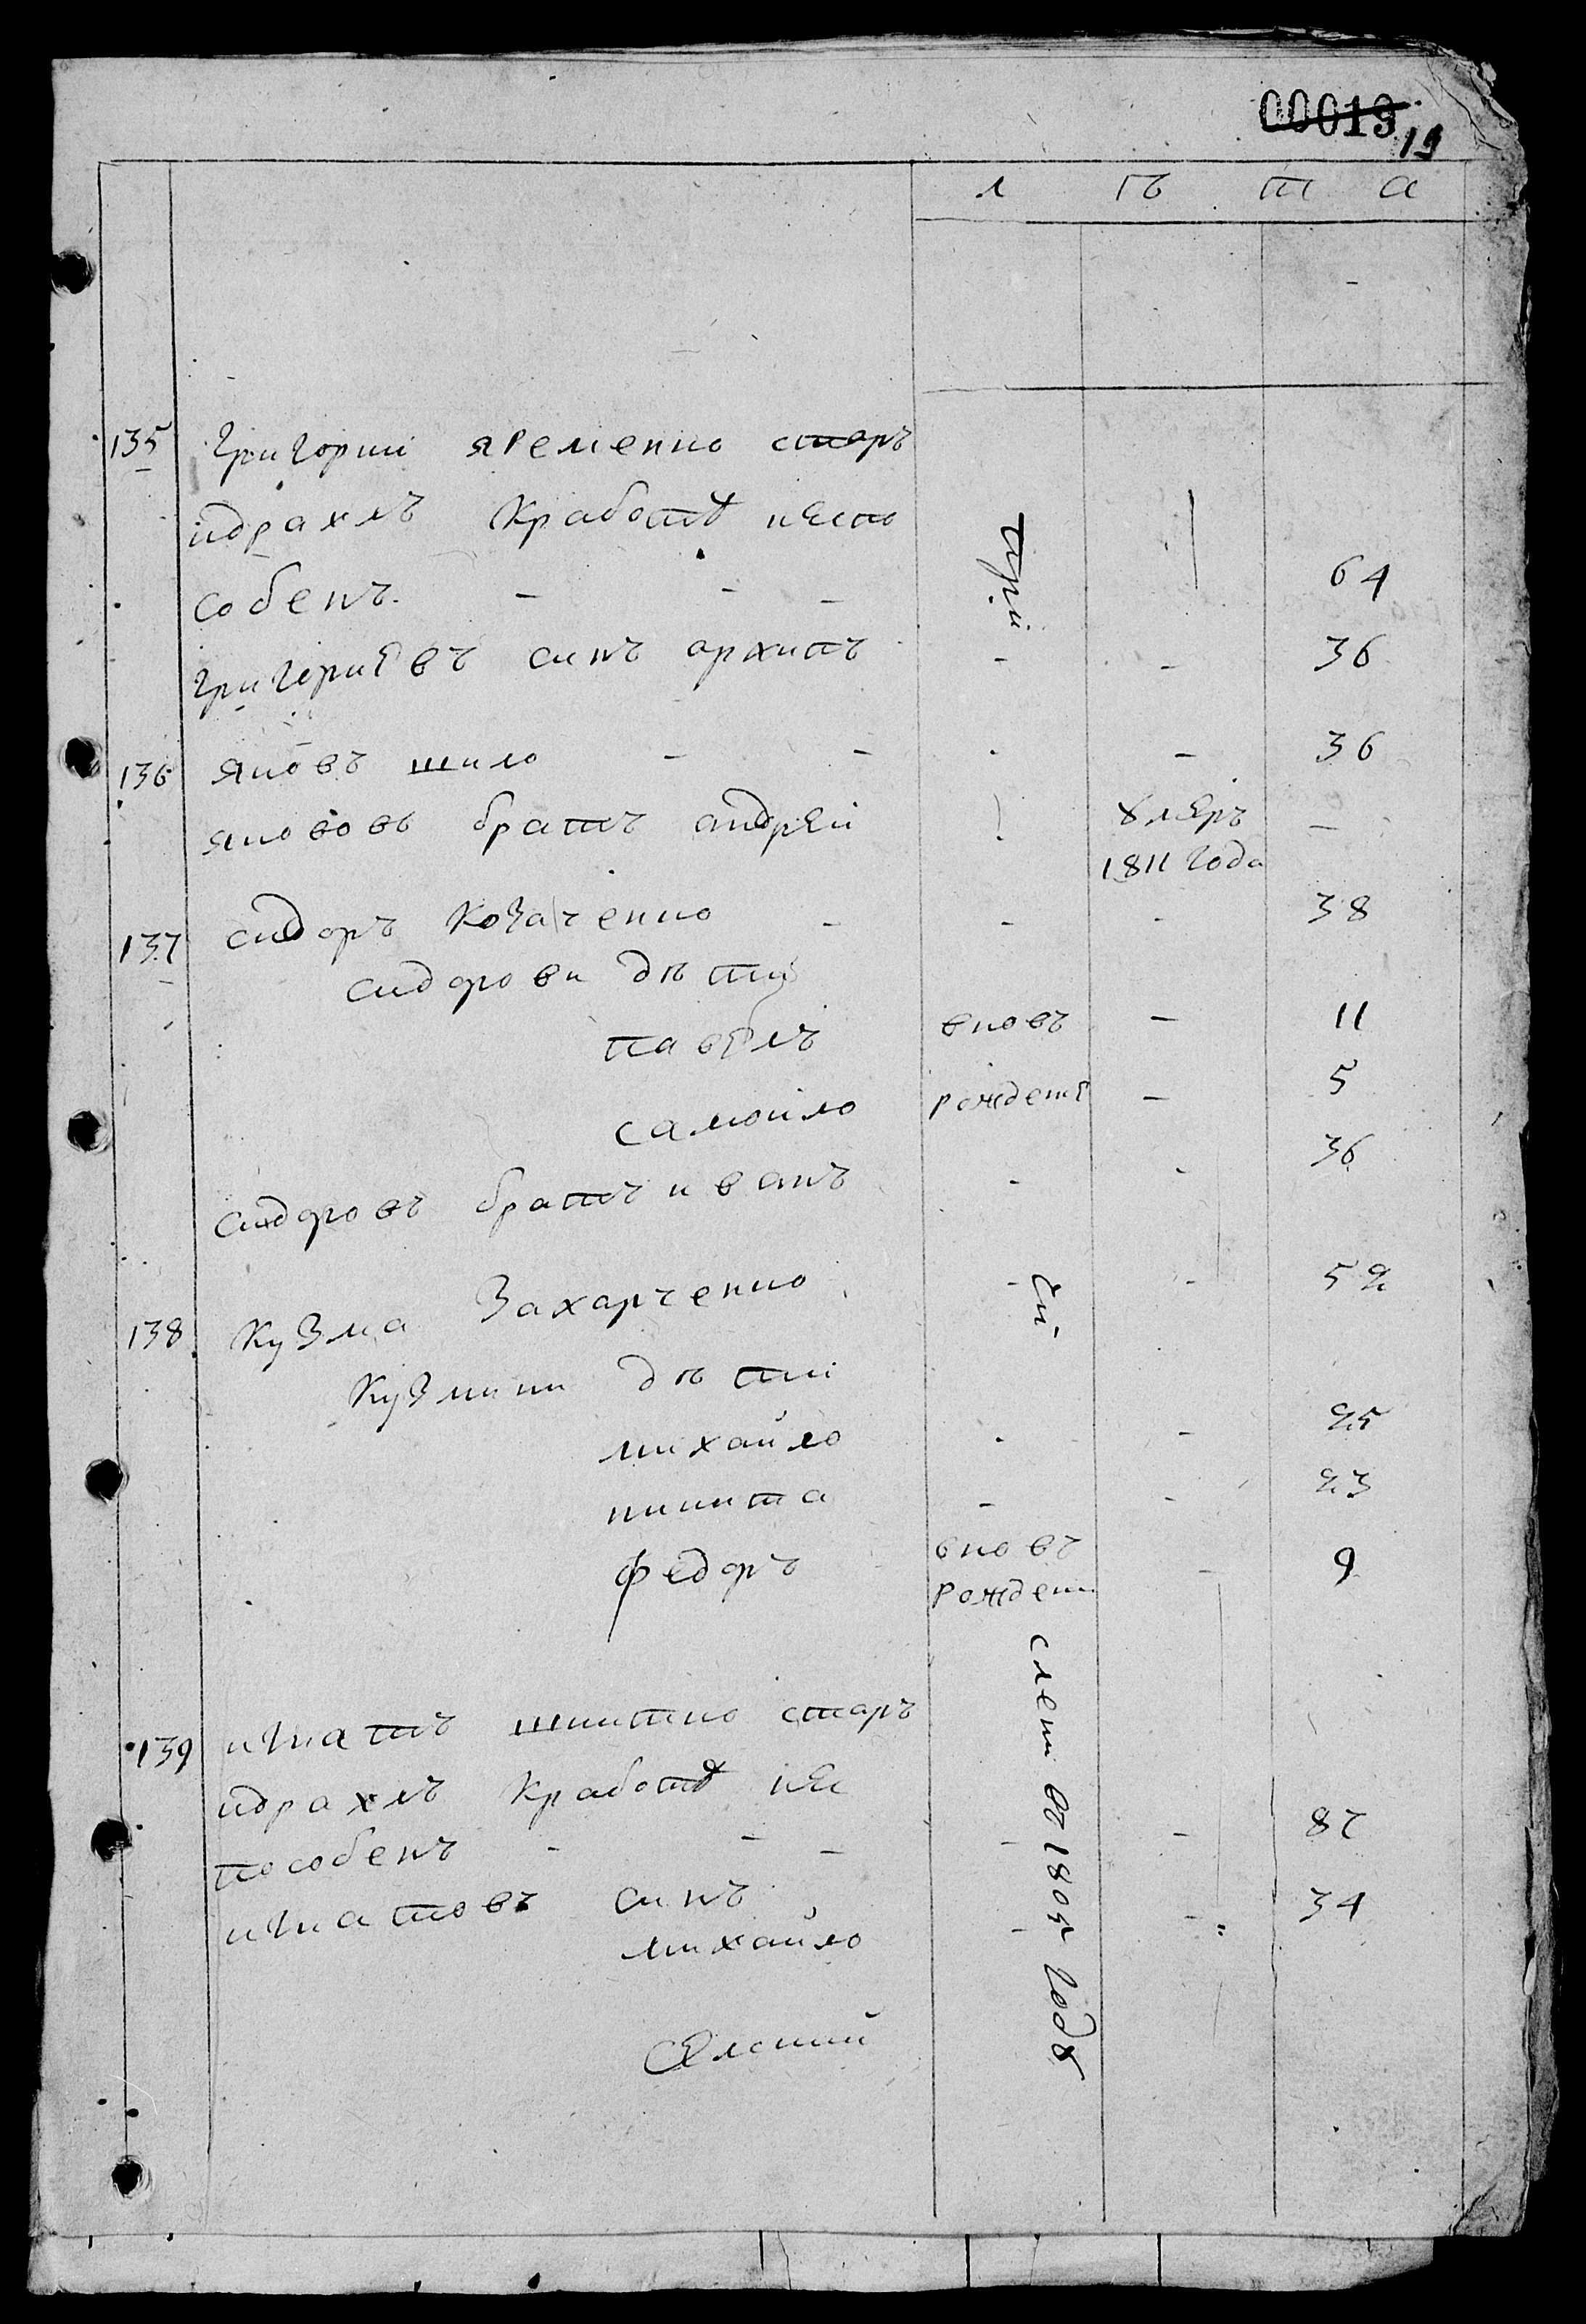 00013
19
л ѣ т а
135 Григорий яременко старъ
идрахлъ Кработѣ неспо
собенъ. - - - 64
григориевъ синъ архипъ - - 36
136 яковъ шило - - - 36
якововъ братъ андрей умеръ -
1811 года
137 сидоръ Козаченко - - - 38
сидорови дѣти
павелъ вновь - 11
самойло рожденн - 5
сидоровъ братъ иванъ - - 36
138 Кузма Захарченко - - 52
Кузмини дѣти
михайло - - 25
никита - - 23
федоръ вновь - 9
рожденн
слеп от 1805 году
139 игнатъ шкитко старъ
идрахлъ Кработѣ не
пособенъ - - - - - 82
игнатовъ синъ - - 34
михайло
Селский